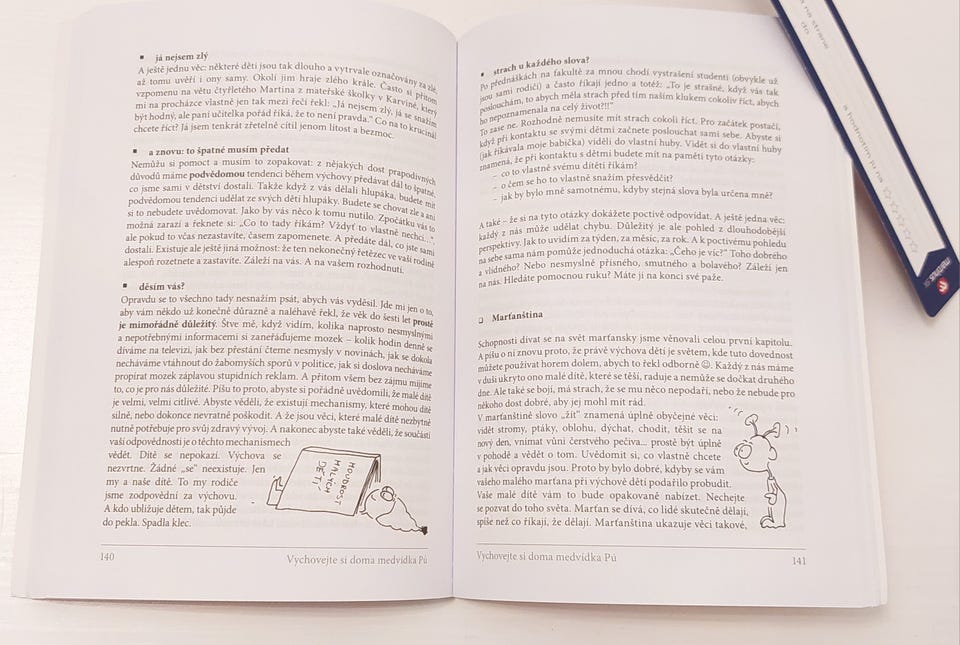 ▪ já nejsem zlý
A ještě jednu věc: některé děti jsou tak dlouho a vytrvale označovány za zlé,
až tomu uvěří i ony samy. Okolí jim hraje zlého krále. Často si přitom
vzpomenu na větu čtyřletého Martina z mateřské školky v Karviné, který
mi na procházce vlastně jen tak mezi řečí řekl: „Já nejsem zlý, já se snažím
být hodný, ale paní učitelka pořád říká, že to není pravda.“ Co na to krucinál
chcete říct? Já jsem tenkrát zřetelně cítil jenom lítost a bezmoc.
▪ a znovu: to špatné musím předat
Nemůžu si pomoct a musím to zopakovat: z nějakých dost prapodivných
důvodů máme podvědomou tendenci během výchovy předávat dál to špatné,
co jsme sami v dětství dostali. Takže když z vás dělali hlupáka, budete mít
podvědomou tendenci udělat ze svých dětí hlupáky. Budete se chovat zle a ani
si to nebudete uvědomovat. Jako by vás něco k tomu nutilo. Zpočátku vás to
možná zarazí a řeknete si: „Co to tady říkám? Vždyť to vlastně nechci...“,
ale pokud to včas nezastavíte, časem zapomenete. A předáte dál, co jste sami
dostali. Existuje ale ještě jiná možnost: že ten nekonečný řetězec ve vaší rodině
alespoň rozetnete a zastavíte. Záleží na vás. A na vašem rozhodnutí.
▪ děsím vás?
Opravdu se to všechno tady nesnažím psát, abych vás vyděsil. Jde mi jen o to,
aby vám někdo už konečně důrazně a naléhavě řekl, že věk do šesti let prostě
je mimořádně důležitý. Štve mě, když vidím, kolika naprosto nesmyslnými
a nepotřebnými informacemi si zaneřáďujeme mozek – kolik hodin denně se
díváme na televizi, jak bez přestání čteme nesmysly v novinách, jak se dokola
necháváme vtáhnout do žabomyších sporů v politice, jak si doslova necháváme
propírat mozek záplavou stupidních reklam. A přitom všem bez zájmu míjíme
to, co je pro nás důležité. Píšu to proto, abyste si pořádně uvědomili, že malé dítě
je velmi, velmi citlivé. Abyste věděli, že existují mechanismy, které mohou dítě
silně, nebo dokonce nevratně poškodit. A že jsou věci, které malé dítě nezbytně
nutně potřebuje pro svůj zdravý vývoj. A nakonec abyste také věděli, že součástí
vaší odpovědnosti je o těchto mechanismech
vědět. Dítě se nepokazí. Výchova se
nezvrtne. Žádné „se“ neexistuje. Jen
my a naše dítě. To my rodiče
jsme zodpovědní za výchovu.
A kdo ubližuje dětem, tak půjde
do pekla. Spadla klec.
MOUDROST
MALÝCH
DĚTÍ
140
Vychovejte si doma medvídka Pú
▪ strach u každého slova?
Po přednáškách na fakultě za mnou chodí vystrašení studenti (obvykle už
jsou sami rodiči) a často říkají jedno a totéž: „To je strašné, když vás tak
poslouchám, to abych měla strach před tím naším klukem cokoliv říct, abych
ho nepoznamenala na celý život?!!“
To zase ne. Rozhodně nemusíte mít strach cokoli říct. Pro začátek postačí,
když při kontaktu se svými dětmi začnete poslouchat sami sebe. Abyste si
(jak říkávala moje babička) viděli do vlastní huby. Vidět si do vlastní huby
znamená, že při kontaktu s dětmi budete mít na paměti tyto otázky:
– co to vlastně svému dítěti říkám?
– o čem se ho to vlastně snažím přesvědčit?
– jak by bylo mně samotnému, kdyby stejná slova byla určena mně?
A také – že si na tyto otázky dokážete poctivě odpovídat. A ještě jedna věc:
každý z nás může udělat chybu. Důležitý je ale pohled z dlouhodobější
perspektivy. Jak to uvidím za týden, za měsíc, za rok. A k poctivému pohledu
na sebe sama nám pomůže jednoduchá otázka: „Čeho je víc?“ Toho dobrého
a vlídného? Nebo nesmyslně přísného, smutného a bolavého? Záleží jen
na nás. Hledáte pomocnou ruku? Máte ji na konci své paže.
❏ Marťanština
Schopnosti dívat se na svět marťansky jsme věnovali celou první kapitolu.
A píšu o ní znovu proto, že právě výchova dětí je světem, kde tuto dovednost
můžete používat horem dolem, abych to řekl odborně ☺. Každý z nás máme
v duši ukryto ono malé dítě, které se těší, raduje a nemůže se dočkat druhého
dne. Ale také se bojí, má strach, že se mu něco nepodaří, nebo že nebude pro
někoho dost dobré, aby jej mohl mít rád.
V marťanštině slovo „žít“ znamená úplně obyčejné věci:
vidět stromy, ptáky, oblohu, dýchat, chodit, těšit se na
nový den, vnímat vůni čerstvého pečiva... prostě být úplně
v pohodě a vědět o tom. Uvědomit si, co vlastně chcete
a jak věci opravdu jsou. Proto by bylo dobré, kdyby se vám
vašeho malého marťana při výchově dětí podařilo probudit.
Vaše malé dítě vám to bude opakovaně nabízet. Nechejte
se pozvat do toho světa. Marťan se dívá, co lidé skutečně dělají,
spíše než co říkají, že dělají. Marťanština ukazuje věci takové,
Vychovejte si doma medvídka Pú
141
a na straně
do
a hodnotím ju na ☆☆☆☆☆
martinus